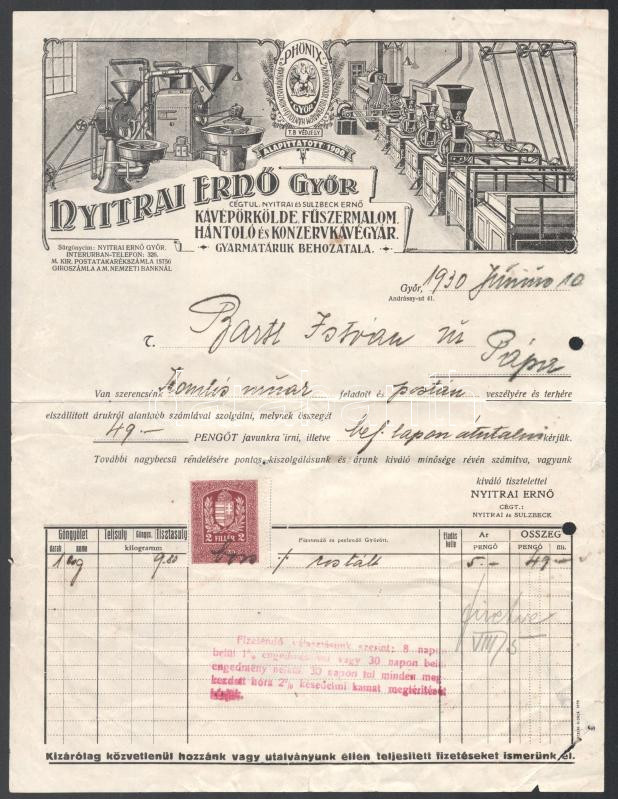 PHÖNIX
GYŐR
T.B. VÉDJEGY
ALAPITTATOTT 1906
NYITRAI ERNŐ GYŐR
CÉGTUL. NYITRAI ÉS SULZBECK ERNŐ
KÁVÉPÖRKÖLDE, FŰSZERMALOM,
HÁNTOLÓ ÉS KONZERVKÁVÉGYÁR.
GYARMATÁRUK BEHOZATALA.
Sürgönycím: NYITRAI ERNŐ GYŐR.
INTERURBAN-TELEFON: 326.
M. KIR. POSTATAKARÉKSZÁMLA 15756
GIROSZÁMLA A M. NEMZETI BANKNÁL
Győr, 1930 Június 10
Andrássy-ut 41.
T. Bartl István úr
Pápa
Van szerencsénk Komlós úr feladott és postán veszélyére és terhére
elszállított árukról alantabb számlával szolgálni, melynek összegét
49.— PENGŐT javunkra írni, illetve bef. lapon átutalni kérjük.
További nagybecsű rendelésére pontos kiszolgálásunk és árunk kiváló minősége révén számítva, vagyunk
kiváló tisztelettel
NYITRAI ERNŐ
CÉGT.:
NYITRAI és SULZBECK
2 FILLÉR 2
Göngyölet Teljsuly Göngys. Tisztasuly Fizetendő és perlendő Győrött. Eladás kelte Ár ÖSSZEG
darab neme kilogramm PENGŐ PENGŐ fill.
1 9.80 rostált 5.— 49.—
fizetve
VIII/5
Fizetendő választásunk szerint: 8 napon
belül 1% engedménnyel vagy 30 napon belül
engedmény nélkül. 30 napon tul minden meg
kezdett hóra 2% késedelmi kamat megtérítését
kérjük.
Kizárólag közvetlenül hozzánk vagy utalványunk ellen teljesített fizetéseket ismerünk el.